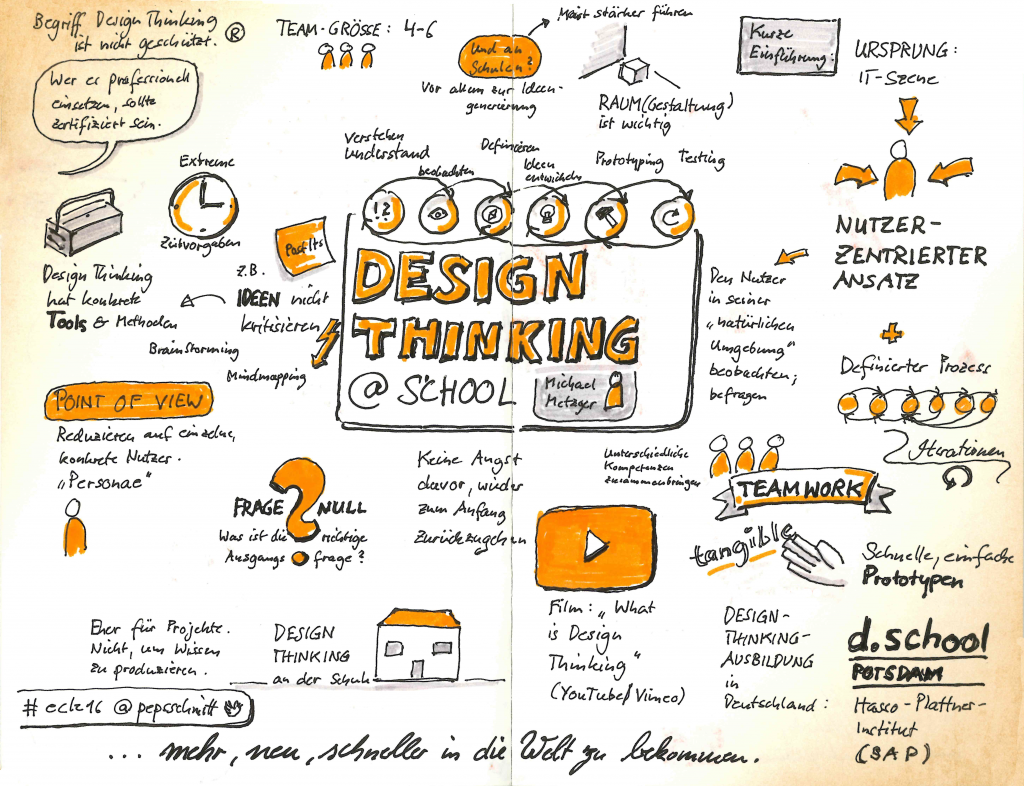 Begriff Design Thinking
ist nicht geschützt. ®
Wer es professionell
einsetzen, sollte
zertifiziert sein.
TEAM-GRÖSSE: 4-6
Und an
Schulen?
Meist stärker führen
Vor allem zur Ideen-
generierung
RAUM(Gestaltung)
ist wichtig
Kurze
Einführung:
URSPRUNG:
IT-Szene
NUTZER-
ZENTRIERTER
ANSATZ
Definierter Prozess
Iterationen
Extreme
Zeitvorgaben
PostIts
Design Thinking
hat konkrete
Tools & Methoden
z.B.
IDEEN nicht
kritisieren
Brainstorming
Mindmapping
Verstehen
Understand
beobachten
Definieren
Ideen
entwickeln
Prototyping
Testing
!?
DESIGN
THINKING
@ SCHOOL
Michael
Metzger
Den Nutzer
in seiner
"natürlichen
Umgebung"
beobachten;
befragen
POINT OF VIEW
Reduzieren auf einzelne,
konkrete Nutzer.
"Personae"
FRAGE ? NULL
Was ist die richtige
Ausgangsfrage?
Keine Angst
davor, wieder
zum Anfang
zurückzugehen
Unterschiedliche
Kompetenzen
zusammenbringen
TEAMWORK
tangible
Schnelle, einfache
Prototypen
Film: "What
is Design
Thinking"
(YouTube/Vimeo)
DESIGN-
THINKING-
AUSBILDUNG
in
Deutschland:
d.school
POTSDAM
Hasso-Plattner-
Institut
(SAP)
Eher für Projekte.
Nicht, um Wissen
zu produzieren.
DESIGN
THINKING
an der Schule
#ecle16 @pepsschmitt
... mehr, neu, schneller in die Welt zu bekommen.